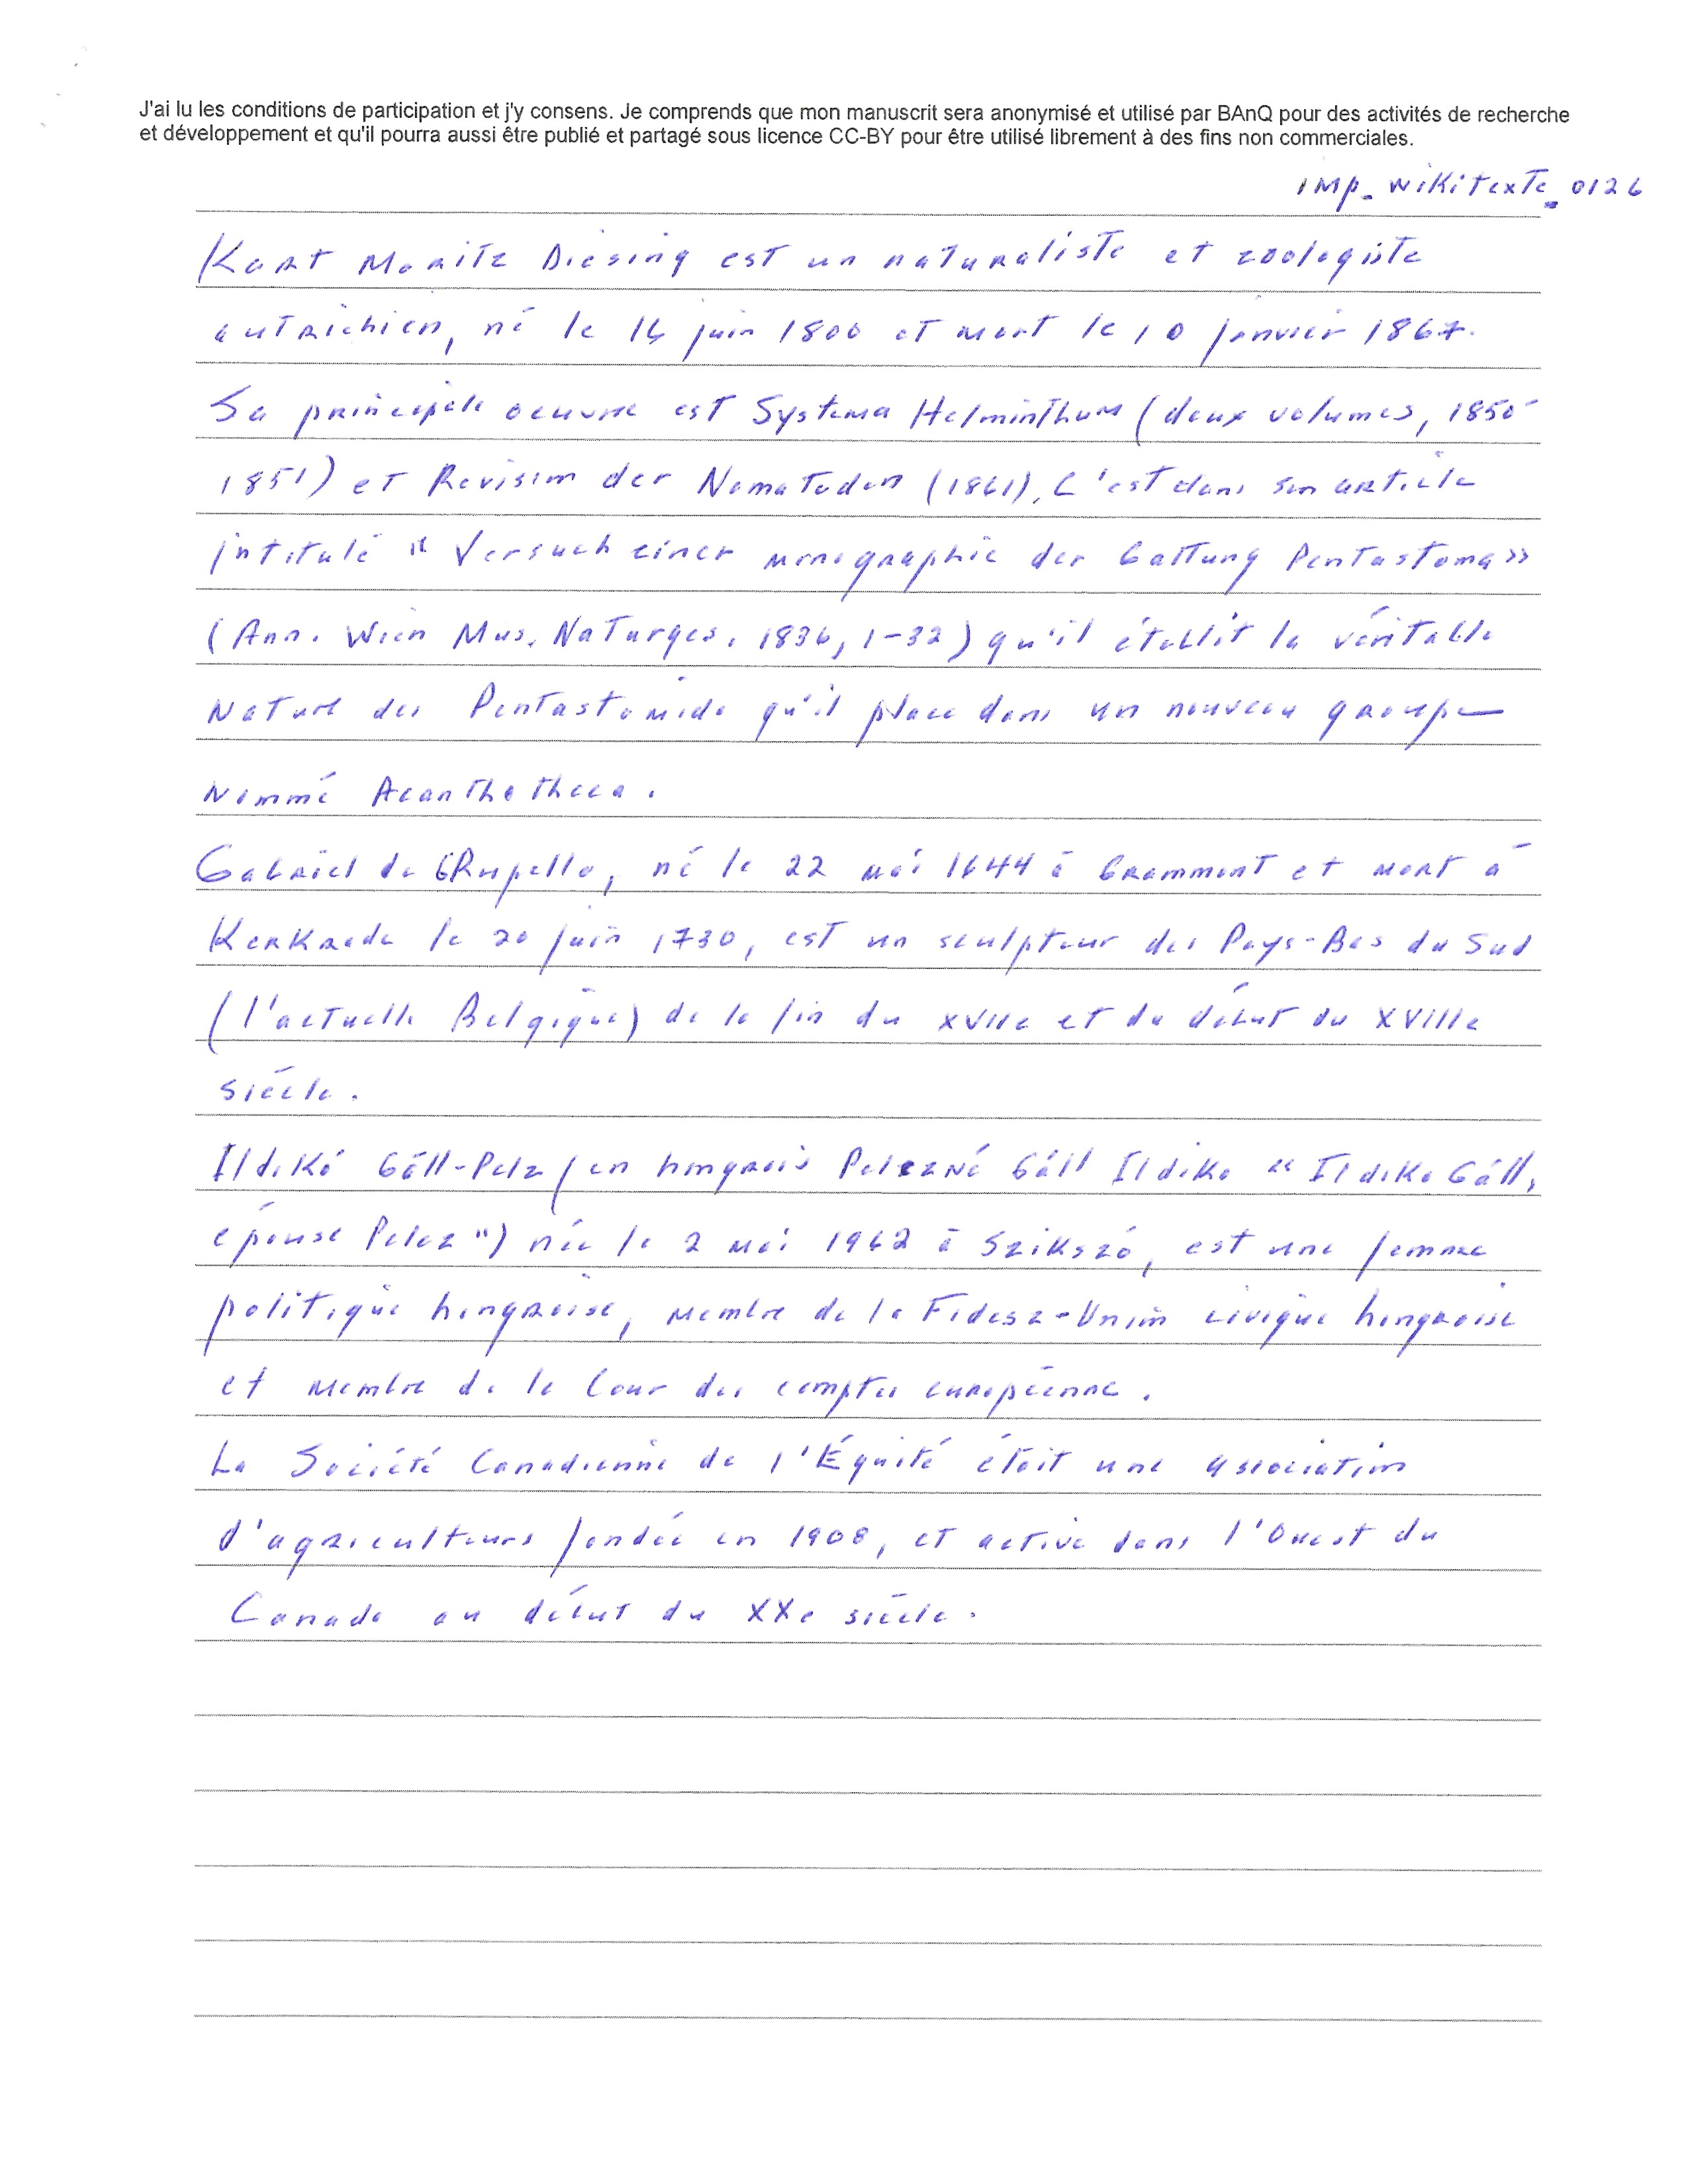 J'ai lu les conditions de participation et j'y consens. Je comprends que mon manuscrit sera anonymisé et utilisé par BAnQ pour des activités de recherche
et développement et qu'il pourra aussi être publié et partagé sous licence CC-BY pour être utilisé librement à des fins non commerciales.
imp_wikitexte_0126
Kart Moritz Diesing est un naturaliste et zoologiste
autrichien, né le 14 juin 1800 et mort le 10 janvier 1867.
Sa principale oeuvre est Systema Helminthum (deux volumes, 1850-
1851) et Revision der Nematoden (1861). C'est dans son article
intitulé « Versuch einer monographie der Gattung Pentastoma »
(Ann. Wien Mus. Naturges. 1836, 1-32) qu'il établit la véritable
nature des Pentastomida qu'il place dans un nouveau groupe
nommé Acanthotheca.
Gabriel de Grupello, né le 22 mai 1644 à Grammont et mort à
Kerkrade le 20 juin 1730, est un sculpteur des Pays-Bas du Sud
(l'actuelle Belgique) de la fin du XVIIe et du début du XVIIIe
siècle.
Ildikó Gáll-Pelz (en hongrois Pelczné Gáll Ildiko « Ildiko Gáll,
épouse Pelcz ") née le 2 mai 1962 à Szikszó, est une femme
politique hongroise, membre de la Fidesz-Union civique hongroise
et membre de la Cour des comptes européenne.
La Société Canadienne de l'Équité était une association
d'agriculteurs fondée en 1908, et active dans l'Ouest du
Canada au début du XXe siècle.